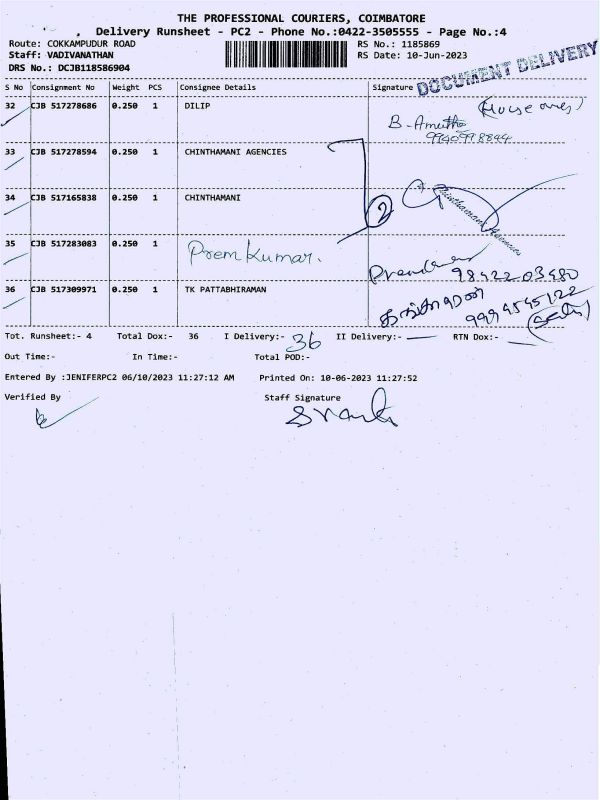 THE PROFESSIONAL COURIERS, COIMBATORE
, Delivery Runsheet - PC2 - Phone No.:0422-3505555 - Page No.:4
Route: COKKAMPUDUR ROAD RS No.: 1185869
Staff: VADIVANATHAN RS Date: 10-Jun-2023
DRS No.: DCJB118586904
DOCUMENT DELIVERY
S No Consignment No Weight PCS Consignee Details Signature
32 CJB 517278686 0.250 1 DILIP
B. Amutha
33 CJB 517278594 0.250 1 CHINTHAMANI AGENCIES
34 CJB 517165838 0.250 1 CHINTHAMANI
2
Chinthamani Agencies
35 CJB 517283083 0.250 1 Prem Kumar.
98422 03480
36 CJB 517309971 0.250 1 TK PATTABHIRAMAN
Tot. Runsheet:- 4 Total Dox:- 36 I Delivery:- 36 II Delivery:- — RTN Dox:- —
Out Time:- In Time:- Total POD:-
Entered By :JENIFERPC2 06/10/2023 11:27:12 AM Printed On: 10-06-2023 11:27:52
Verified By Staff Signature